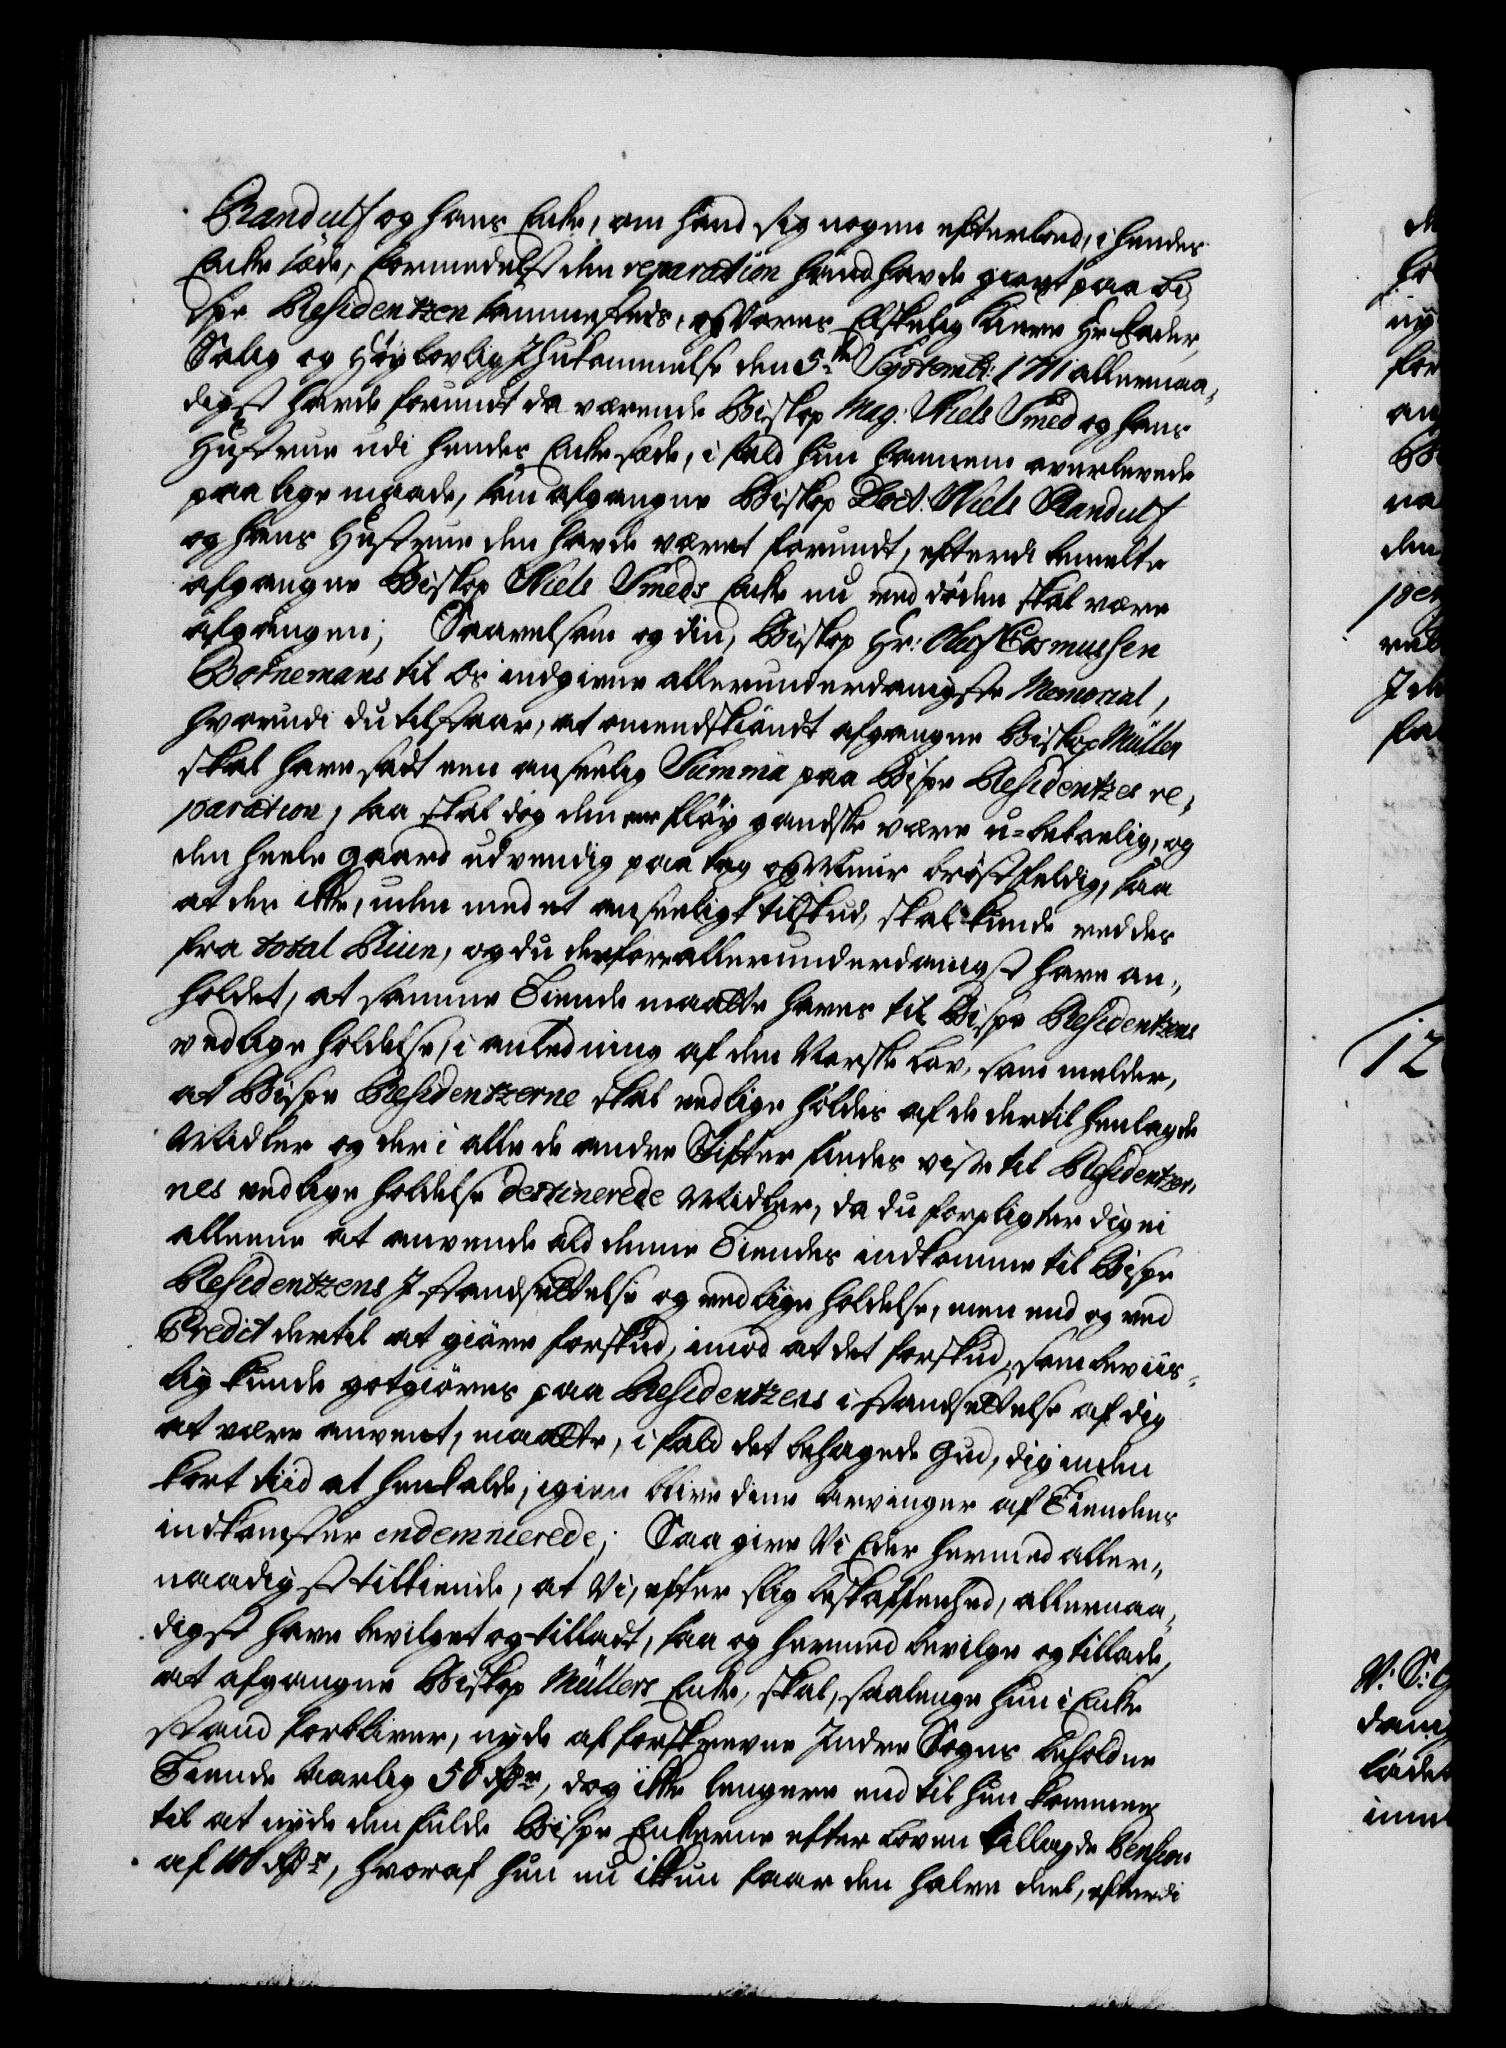 Randulf og hans Enke, om hand sig nogen efterloed, i hendes
Enke sæde, formedelst den reparation hand havde giort paa Bi„
spe Residentzen sammesteds, og Vores Elskelig kiere Hr Fader,
Salig og Høylovlig Ihukommelse den 5te Septembr: 1711 allernaa„
digst havde forundt da værende Biskop Mag: Niels Smed og hans
Hustrue udi hendes Enkesæde, i fald hun hannem overlevede
paa lige maade, som afgangne Biskop Doct: Niels Randulf
og hans Hustrue den havde været forundt, efterdi bemelte
afgangne Biskop Niels Smeds Enke nu ved døden skal være
afgangen; Saavelsom og din, Biskop Hr: Oluf Cosmussen
Bornemans til Os indgivne allerunderdanigste Memorial,
hvorudi du tilstaar, at omendskiøndt afgangne Biskop Müller
skal have sadt een anseelig Summa paa Bispe Residentzes re„
paration, saa skal dog den eene fløy gandske være u-beboelig, og
den heele gaard udvendig paa tag og Muur brøstfeldig, saa
at den ikke, uden med et anseeligt tilskud, skal kunde reddes
fra total Ruin, og du derfore allerunderdanigst have an„
holdet, at samme Tiende maatte haves til Bispe Residentzens
vedlige holdelse, i anledning af den Norske Lov, som melder,
at Bispe Residentzerne skal vedlige holdes af de dertil henlagde
Midler og der i alle de andre Stifter findes visse til Residentzer„
nes vedlige holdelse destinerede Midler, da du forpligter dig ei
alleene at anvende ald denne Tiendes indkomme til Bispe
Residentzens Istandsættelse og vedlige holdelse, men end og ved
Credit dertil at giøre forskud, imod at det forskud, som beviis„
lig kunde gotgiøres paa Residentzens istandsættelse af dig
at være anvent, maatte, i fald det behagede Gud, dig inden
kort tiid at henkalde, igien blive dine Arvinger af Tiendens
indkomster endemnierede; Saa give Vi Eder hermed aller„
naadigst tilkiende, at Vi, efter slig beskaffenhed, allernaa„
digst have bevilget og tilladt, saa og hermed bevilge og tillade,
at afgangne Biskop Müllers Enke, skal, saalenge hun i Enke
stand forbliver, nyde af forskrevne Indre Sogns beholdne
Tiende Aarlig 50 Rdr, dog ikke lengere end til hun kommer
til at nyde den fulde Bispe Enkerne efter Loven tillagde Pension
af 100 Rdr, hvoraf hun nu ikkun faar den halve deel, efterdi